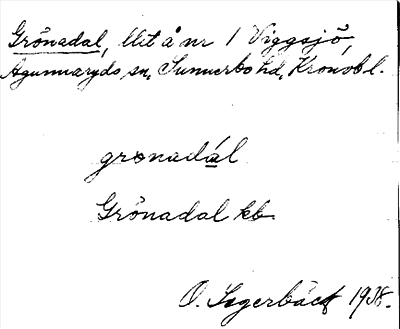 Grönadal, llit å nr 1 Viggsjö,
Agunnaryds sn, Sunnerbo hd, Kronob l.
gronadál
Grönadal kb
O. Sagerbäck 1938.